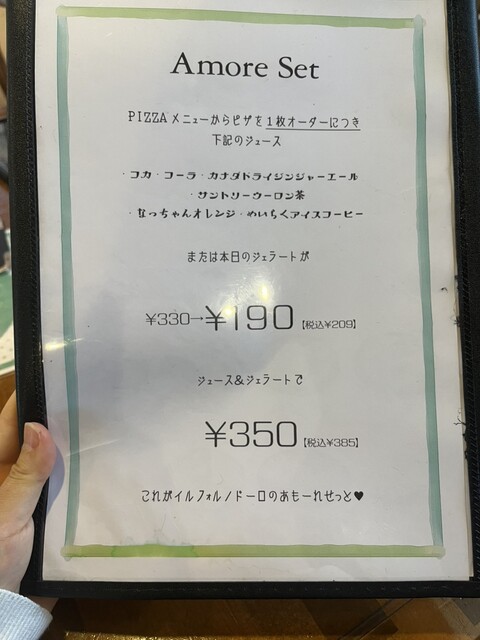 Amore Set
PIZZAメニューからピザを1枚オーダーにつき
下記のジュース
・コカ・コーラ・カナダドライジンジャーエール
・サントリーウーロン茶
・なっちゃんオレンジ・めいらくアイスコーヒー
または本日のジェラートが
¥330→¥190【税込¥209】
ジュース&ジェラートで
¥350【税込¥385】
これがイルフォルノドーロのあもーれせっと♥